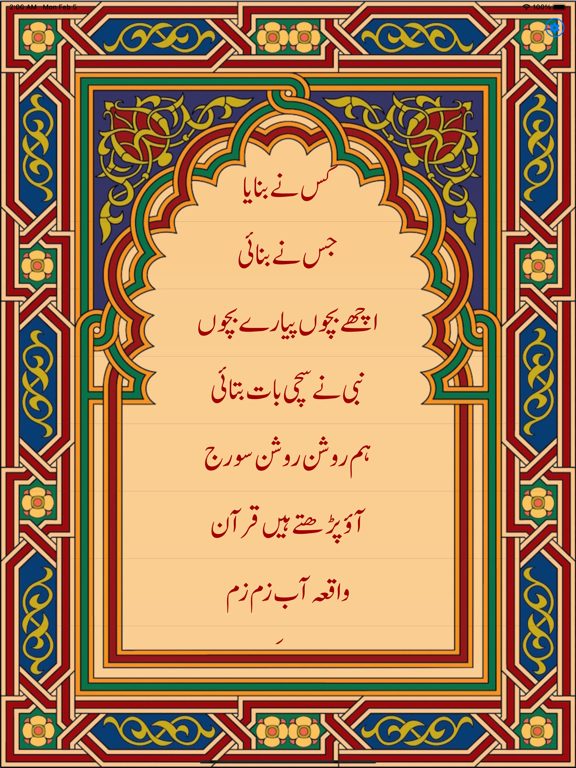 2:06 AM Mon Feb 5 100%
کس نے بنایا
جس نے بنائی
اچھے بچوں پیارے بچوں
نبی نے سچی بات بتائی
ہم روشن روشن سورج
آؤ پڑھتے ہیں قرآن
واقعہ آب زم زم